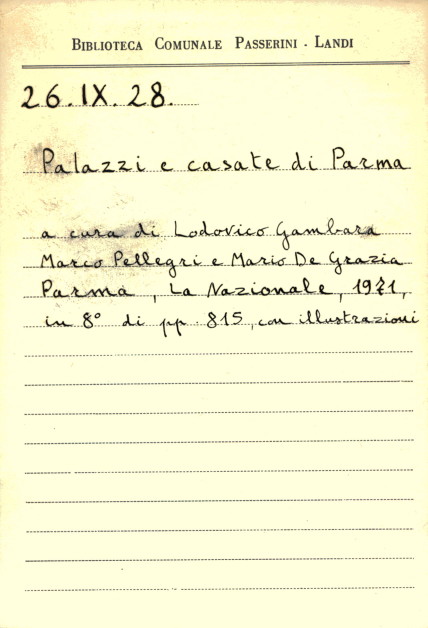 BIBLIOTECA COMUNALE PASSERINI - LANDI
26.IX.28.
Palazzi e casate di Parma
a cura di Lodovico Gambara
Marco Pellegri e Mario De Grazia
Parma, La Nazionale, 1971,
in 8° di pp. 815, con illustrazioni